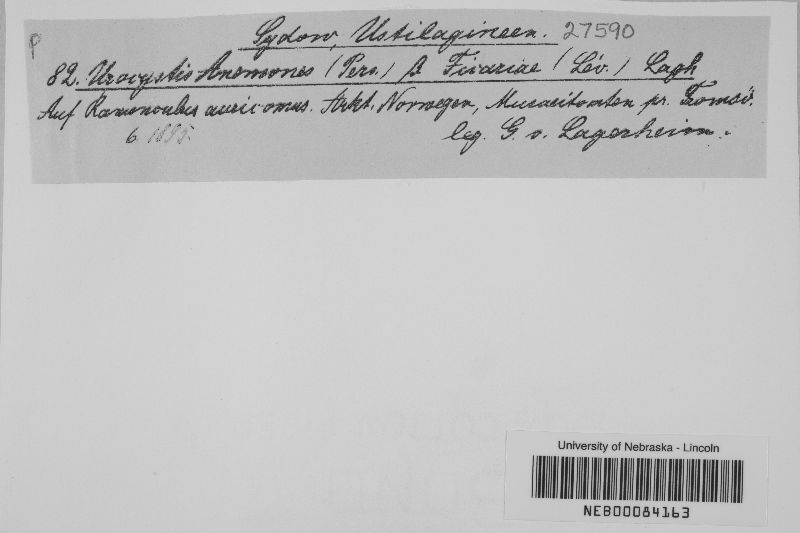 P
Sydow, Ustilagineen. 27590
82. Urocystis Anemones (Pers.) β Ficariae (Lév.) Lagh
Auf Ranunculus auricomus. Arkt. Norwegen, pr. Tromsö.
6 1895. leg. G. v. Lagerheim.
University of Nebraska - Lincoln
NEB00084163